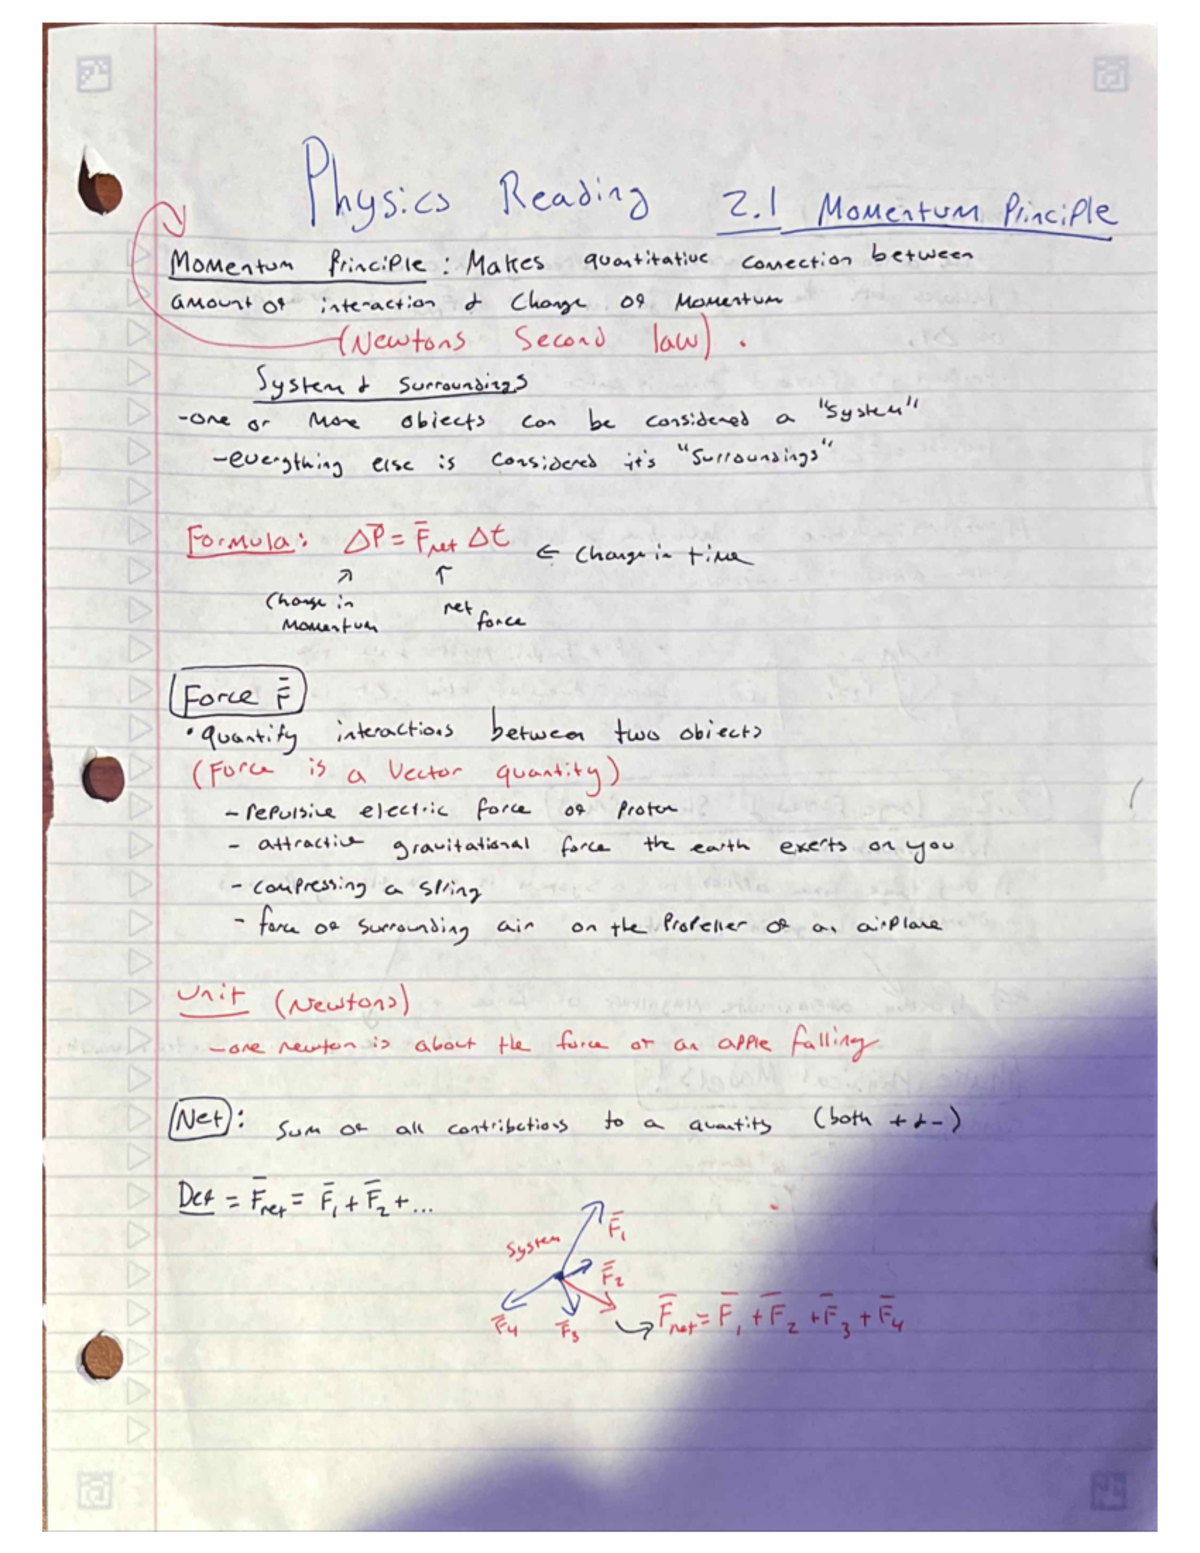 Physics Reading 2.1 Momentum Principle
Momentum Principle: Makes quantitative connection between
amount of interaction & Change of Momentum
(Newtons Second law).
System & Surroundings
-one or More objects can be considered a "System"
-everything else is considered it's "Surroundings"
Formula: ΔP⃗ = F̄net Δt ← Change in time
Change in Momentum
net force
Force F̄
• quantify interactions between two objects
(Force is a Vector quantity)
- repulsive electric force of Proton
- attractive gravitational force the earth exerts on you
- compressing a spring
- force of surrounding air on the Propeller of an airplane
Unit (Newtons)
-one newton is about the force of an apple falling
Net: Sum of all contributions to a quantity (both + & -)
Def = F̄net = F̄1 + F̄2 + ...
System
F̄1
F̄2
F̄4 F̄3
F̄net = F̄1 + F̄2 + F̄3 + F̄4